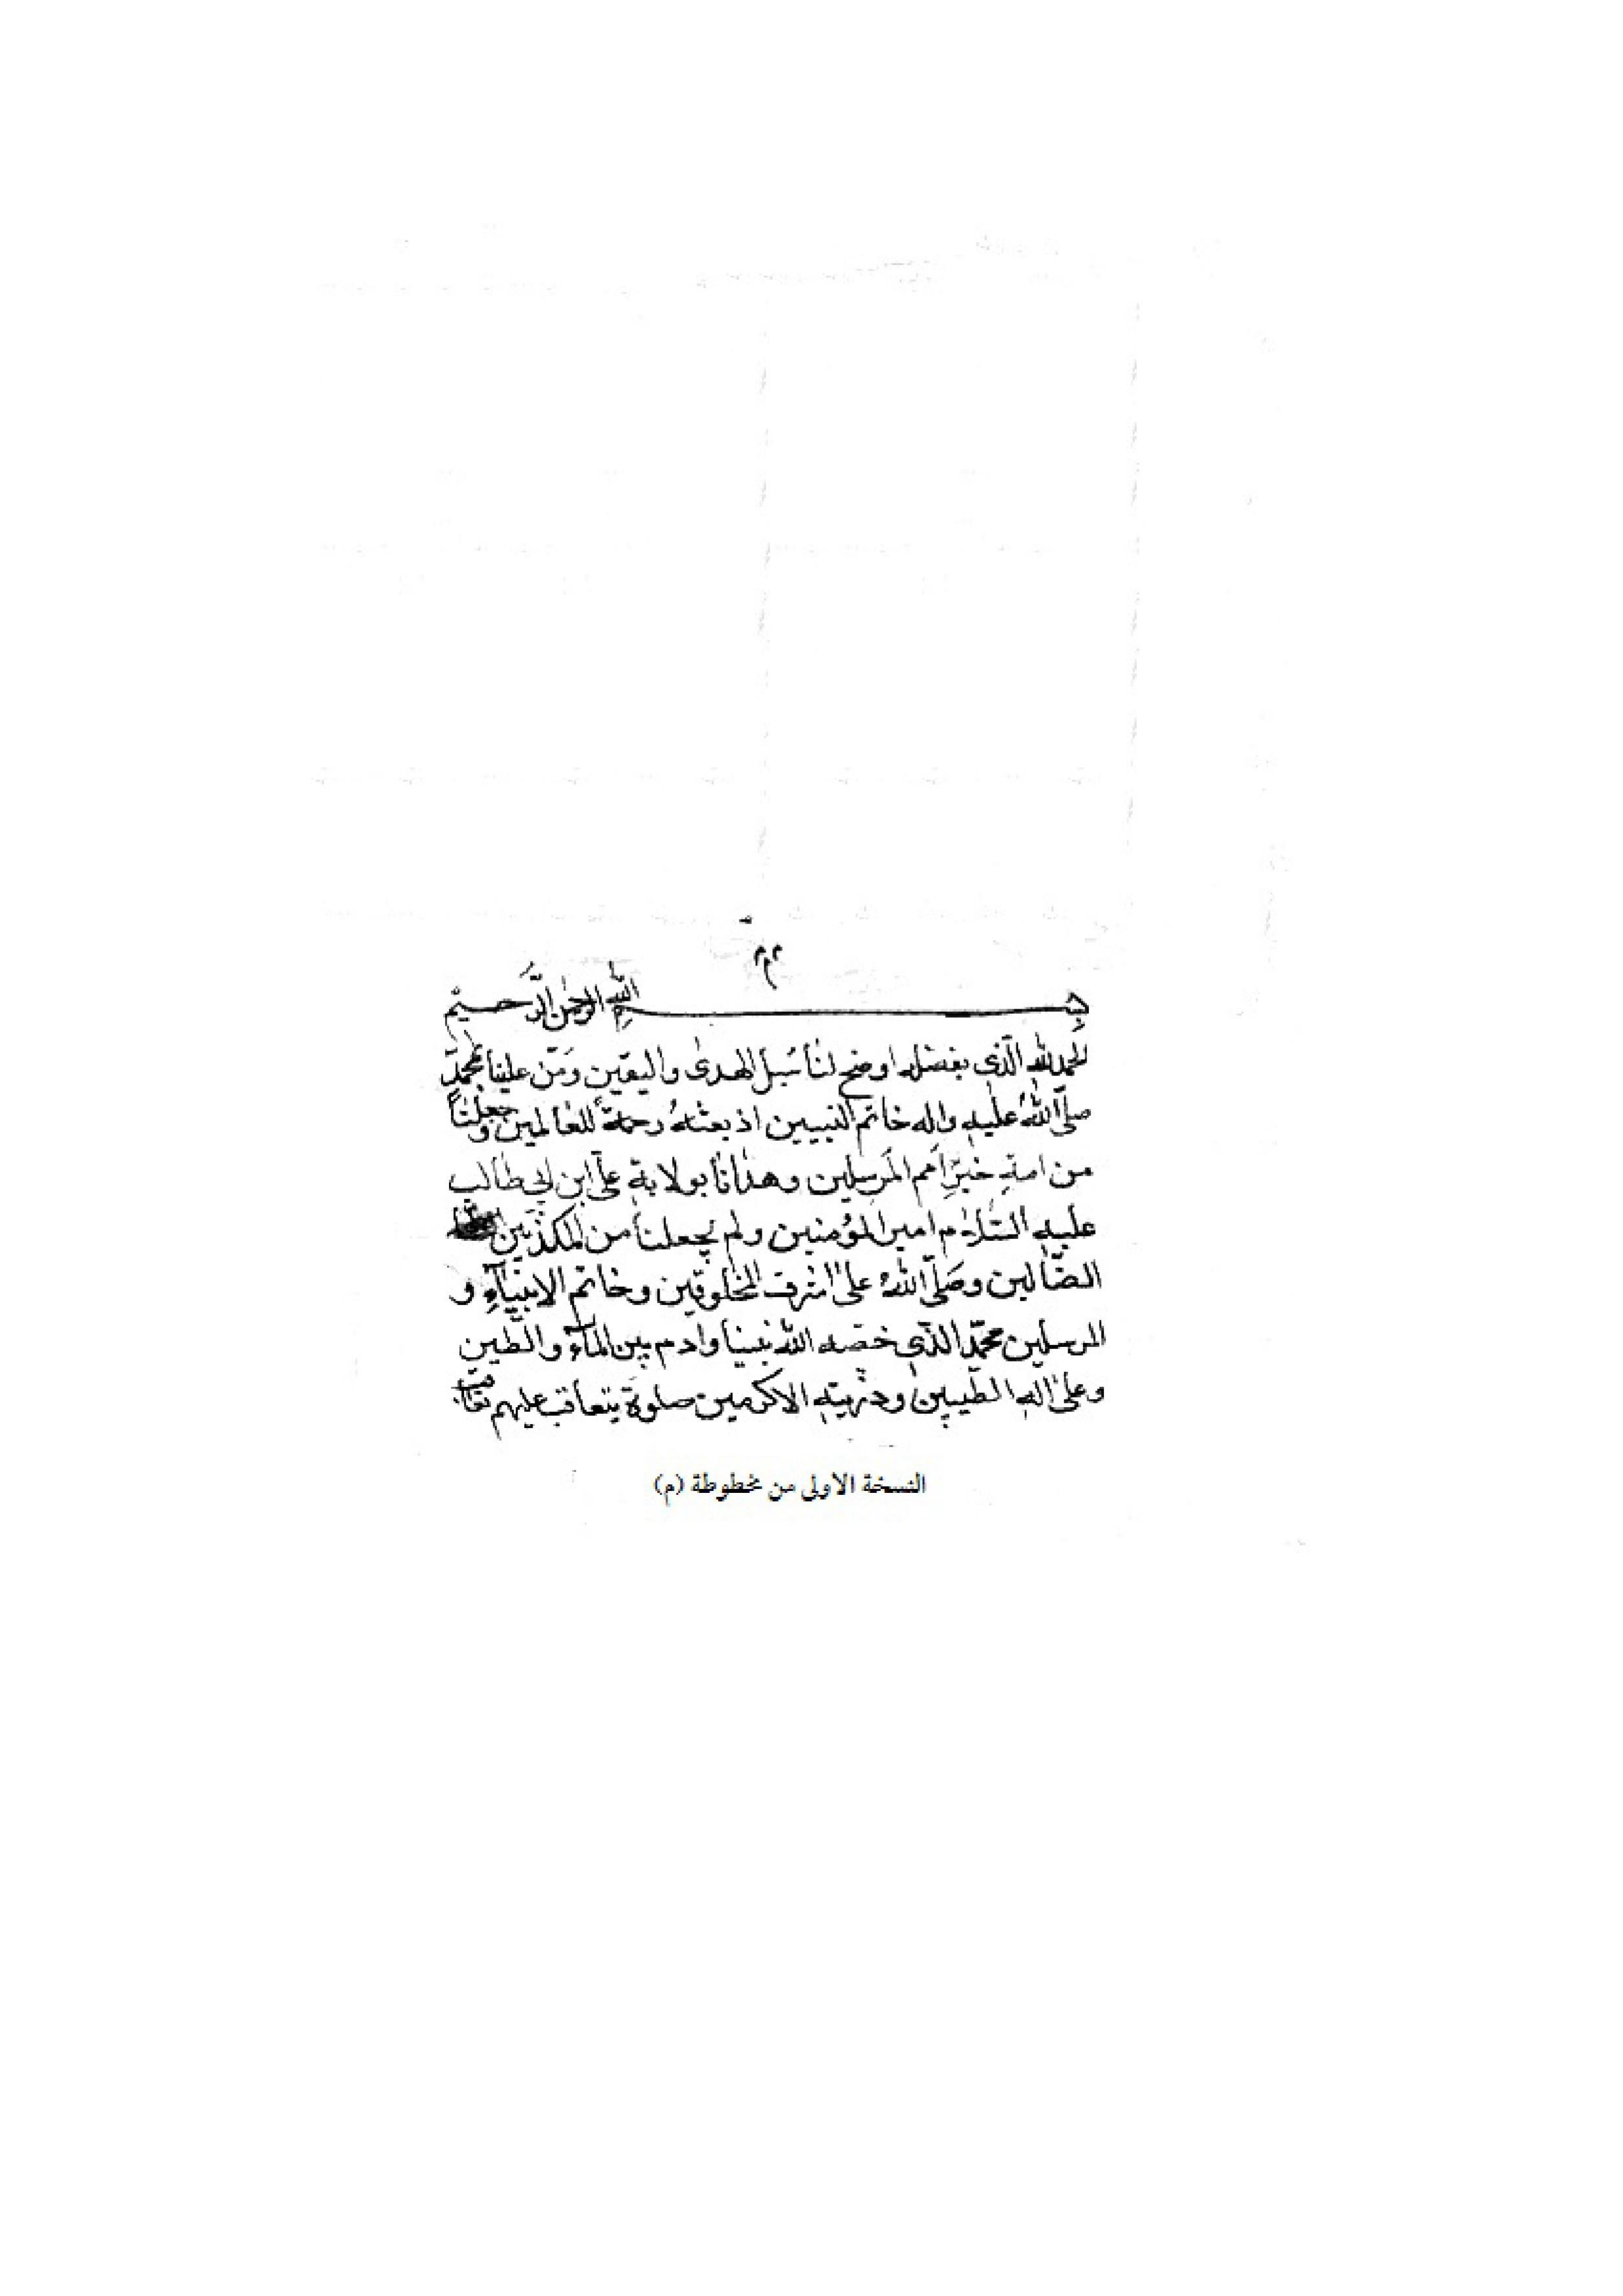 بسم الله الرحمن الرحيم
الحمد لله الذي بفضله اوضح لنا سُبل الهدى واليقين وَمَنّ علينا بمحمّدٍ
صلّى اللهُ عليه واله خاتم النبيين اذ بعثهُ رحمةً للعالمين وجعلنا
من امةِ خيرِ اُمم المرسلين وهدانا بولاية علي ابن ابي طالب
عليه السّلام امير المؤمنين ولم يجعلنا من المكذّبين
الضّالين وصَلّى اللهُ على اشرف المخلوقين وخاتم الانبيآءِ و
المرسلين محمّد الذّي خصّه الله نبينا وادم بين المآءِ والطين
وعلى اله الطّيبين وذريته الاكرمين صلوةً يتعاقب عليهم تعاقب
النسخة الاولى من مخطوطة (م)